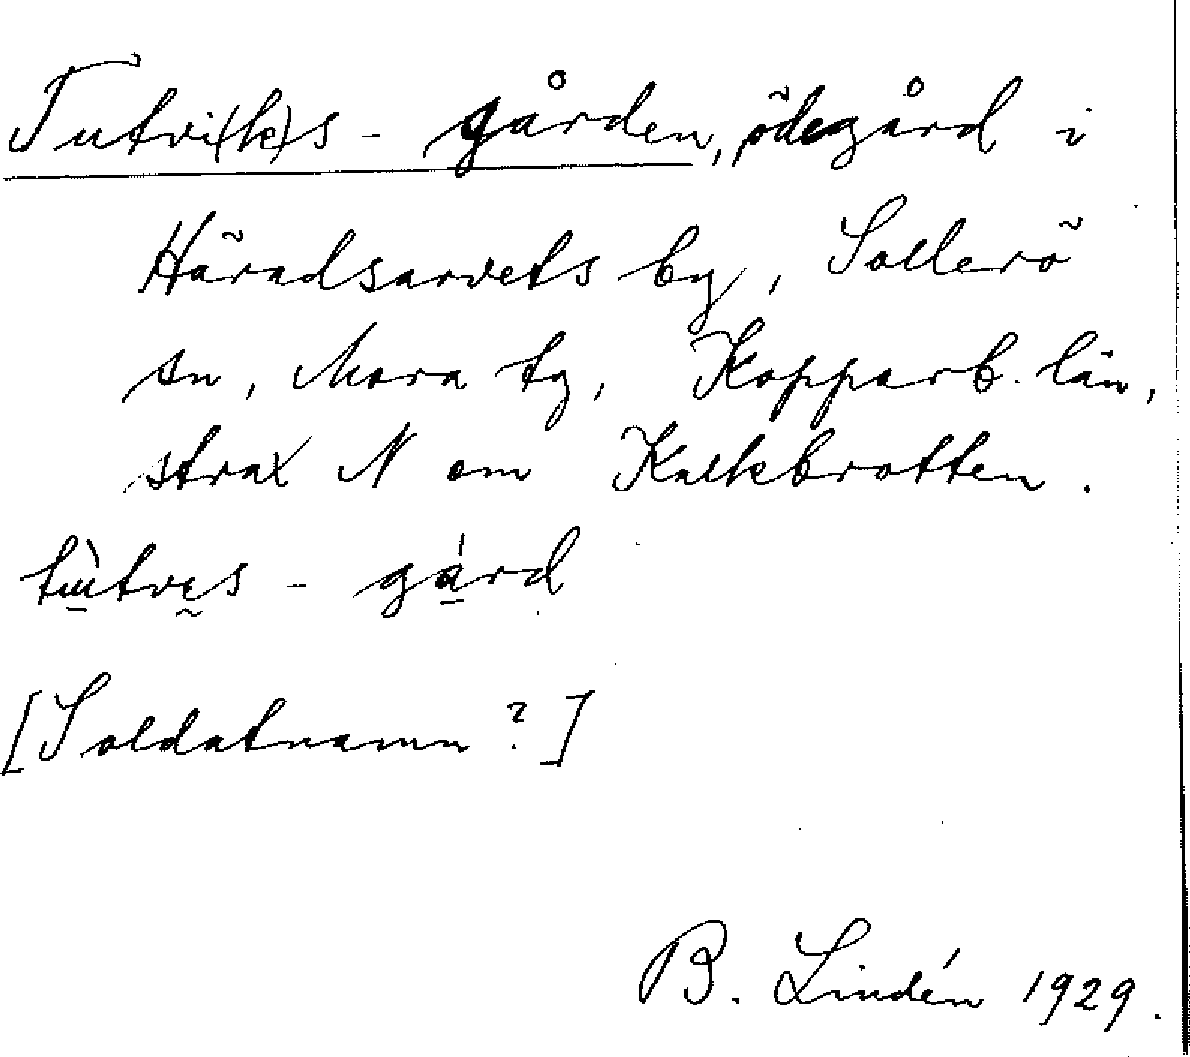 Tutvi(k)s-gården, ödegård i
Häradsarvets by, Sollerö
sn, Mora tg, Kopparb. län,
strax N om Kalkbrotten.
tùtvis-gárd
[Soldatnamn?]
B. Lindén 1929.